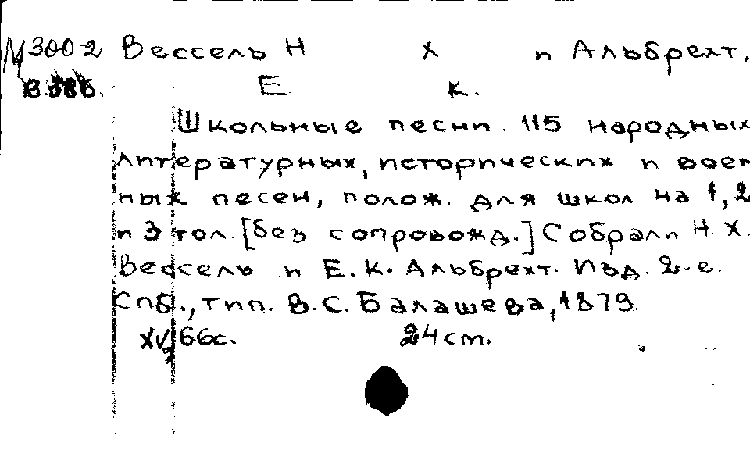 М300-2 Вессель Н Х и Альбрехт,
Е. К.
Школьные песни. 115 народных
литературных, исторических и воен
ных песен, полож. для школ на 1, 2
и 3 гол. [без сопровожд.] Собрали Н. Х.
Вессель и Е. К. Альбрехт. Изд. 2-е.
Спб., тип. В. С. Балашева, 1879
XV, 66с. 24 см.